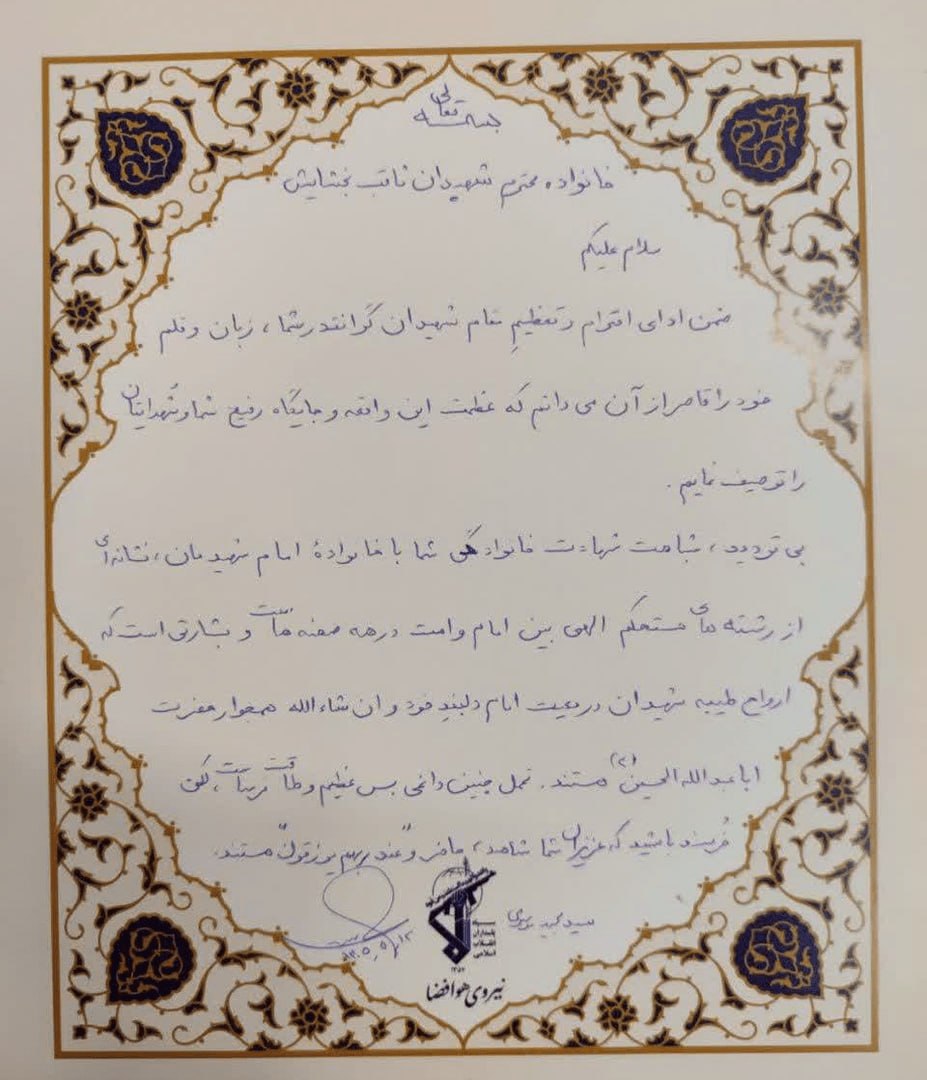 بسمه تعالی
خانواده محترم شهیدان ثاقب بخشایش
سلام علیکم
ضمن ادای احترام و تعظیمِ مقام شهیدان گرانقدر شما، زبان و قلم
خود را قاصر از آن می دانم که عظمت این واقعه و جایگاه رفیع شما و شهدایتان
را توصیف نمایم.
بی تردید، شباهت شهادت خانوادگی شما با خانوادهٔ امام شهیدمان، نشانه ای
از رشته های مستحکم الهی بین امام و امت در همه صحنه هاست و بشارتی است که
ارواح طیبه شهیدان در معیت امام دلبندِ خود و ان شاءالله همجوار حضرت
اباعبدالله الحسین (ع) هستند. تحمل چنین داغی بس عظیم و طاقت فرساست، لکن
خُرسند باشید که عزیزان شما شاهد، حاضر و "عند ربهم یرزقون" هستند.
سید مجید موسوی
سپاه
پاسداران
انقلاب
اسلامی
نیروی هوافضا